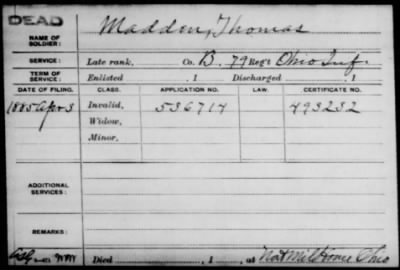 DEAD
NAME OF SOLDIER: Madden, Thomas
SERVICE: Late rank, Co. B. 79 Reg't Ohio Inf.
TERM OF SERVICE: Enlisted , 1 Discharged , 1
DATE OF FILING. CLASS. APPLICATION NO. LAW. CERTIFICATE NO.
1885 Apr 3 Invalid, 536714 493232
Widow,
Minor,
ADDITIONAL SERVICES:
REMARKS:
Died , 1 , at Nat Mil Home Ohio